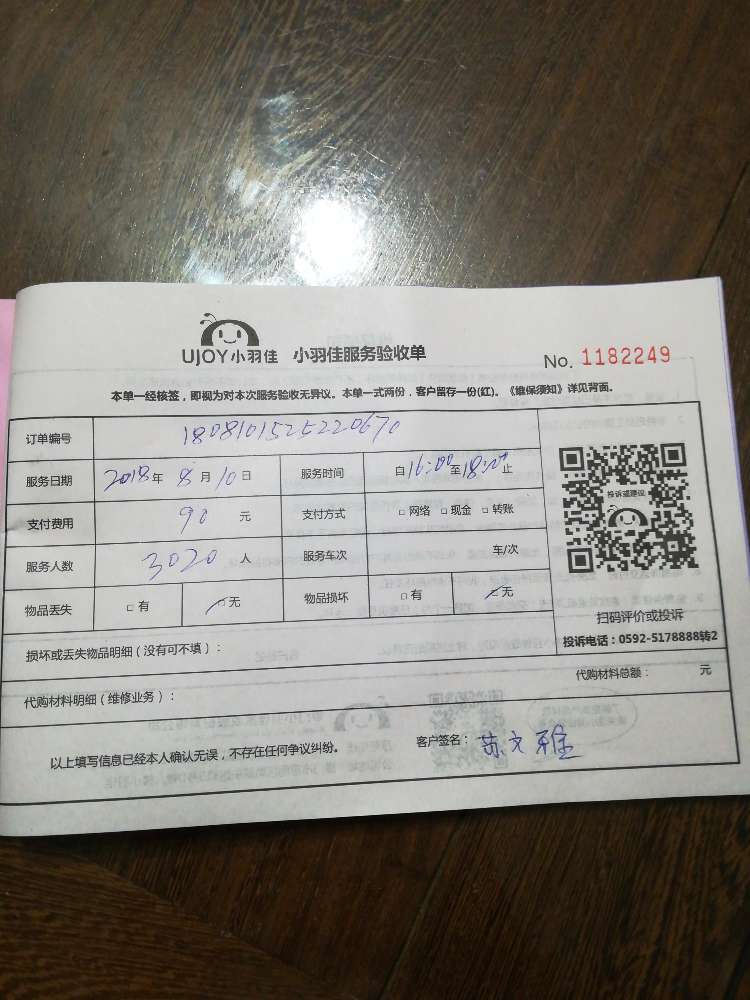 UJOY小羽佳 小羽佳服务验收单 No. 1182249
本单一经核签，即视为对本次服务验收无异议。本单一式两份，客户留存一份(红)。《维保须知》详见背面。
订单编号 1808101525220670
服务日期 2018年 8月10日 服务时间 自16:00至18:00止
支付费用 90 元 支付方式 □ 网络 □ 现金 □ 转账
服务人数 3020 人 服务车次 车/次
物品丢失 □ 有 □ 无 物品损坏 □ 有 □ 无
投诉或建议
扫码评价或投诉
投诉电话：0592-5178888转2
损坏或丢失物品明细（没有可不填）：
代购材料明细（维修业务）： 代购材料总额： 元
以上填写信息已经本人确认无误，不存在任何争议纠纷。 客户签名： 苏文雅